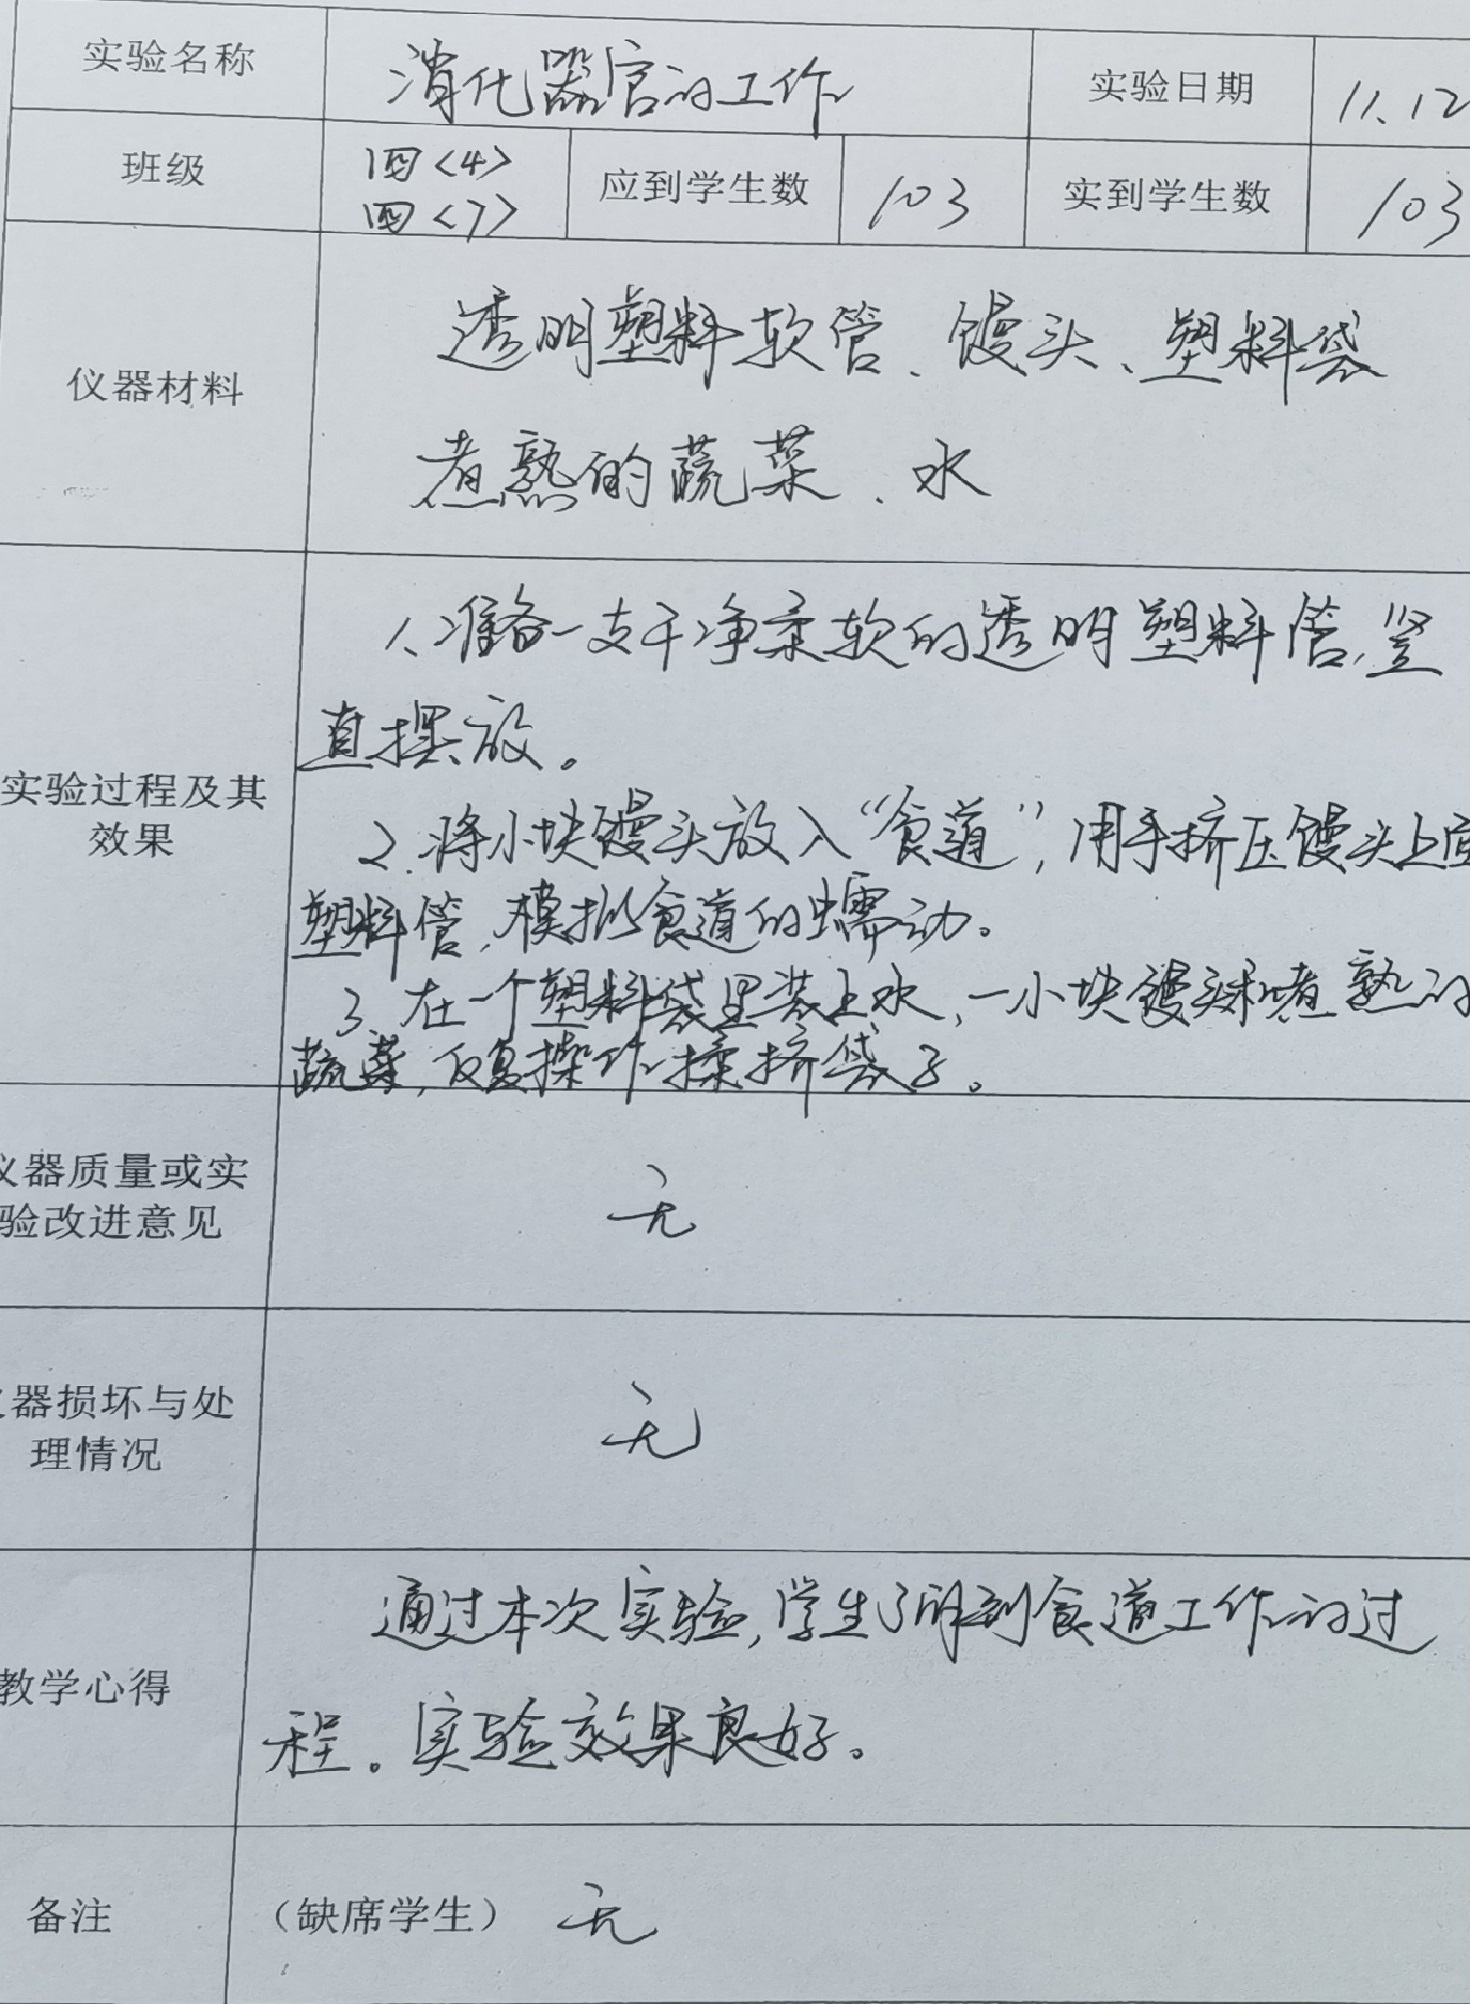 实验名称 消化器官的工作 实验日期 11.12
班级 四<4> 四<7> 应到学生数 103 实到学生数 103
仪器材料
透明塑料软管、馒头、塑料袋
煮熟的蔬菜、水
实验过程及其
效果
1、准备一支干净柔软的透明塑料管,竖
直摆放。
2.将小块馒头放入“食道”,用手挤压馒头上面
塑料管,模拟食道的蠕动。
3、在一个塑料袋里装上水,一小块馒头和煮熟的
蔬菜,反复操作揉挤袋子。
仪器质量或实
验改进意见
无
仪器损坏与处
理情况
无
教学心得
通过本次实验,学生了解到食道工作的过
程。实验效果良好。
备注 (缺席学生) 无